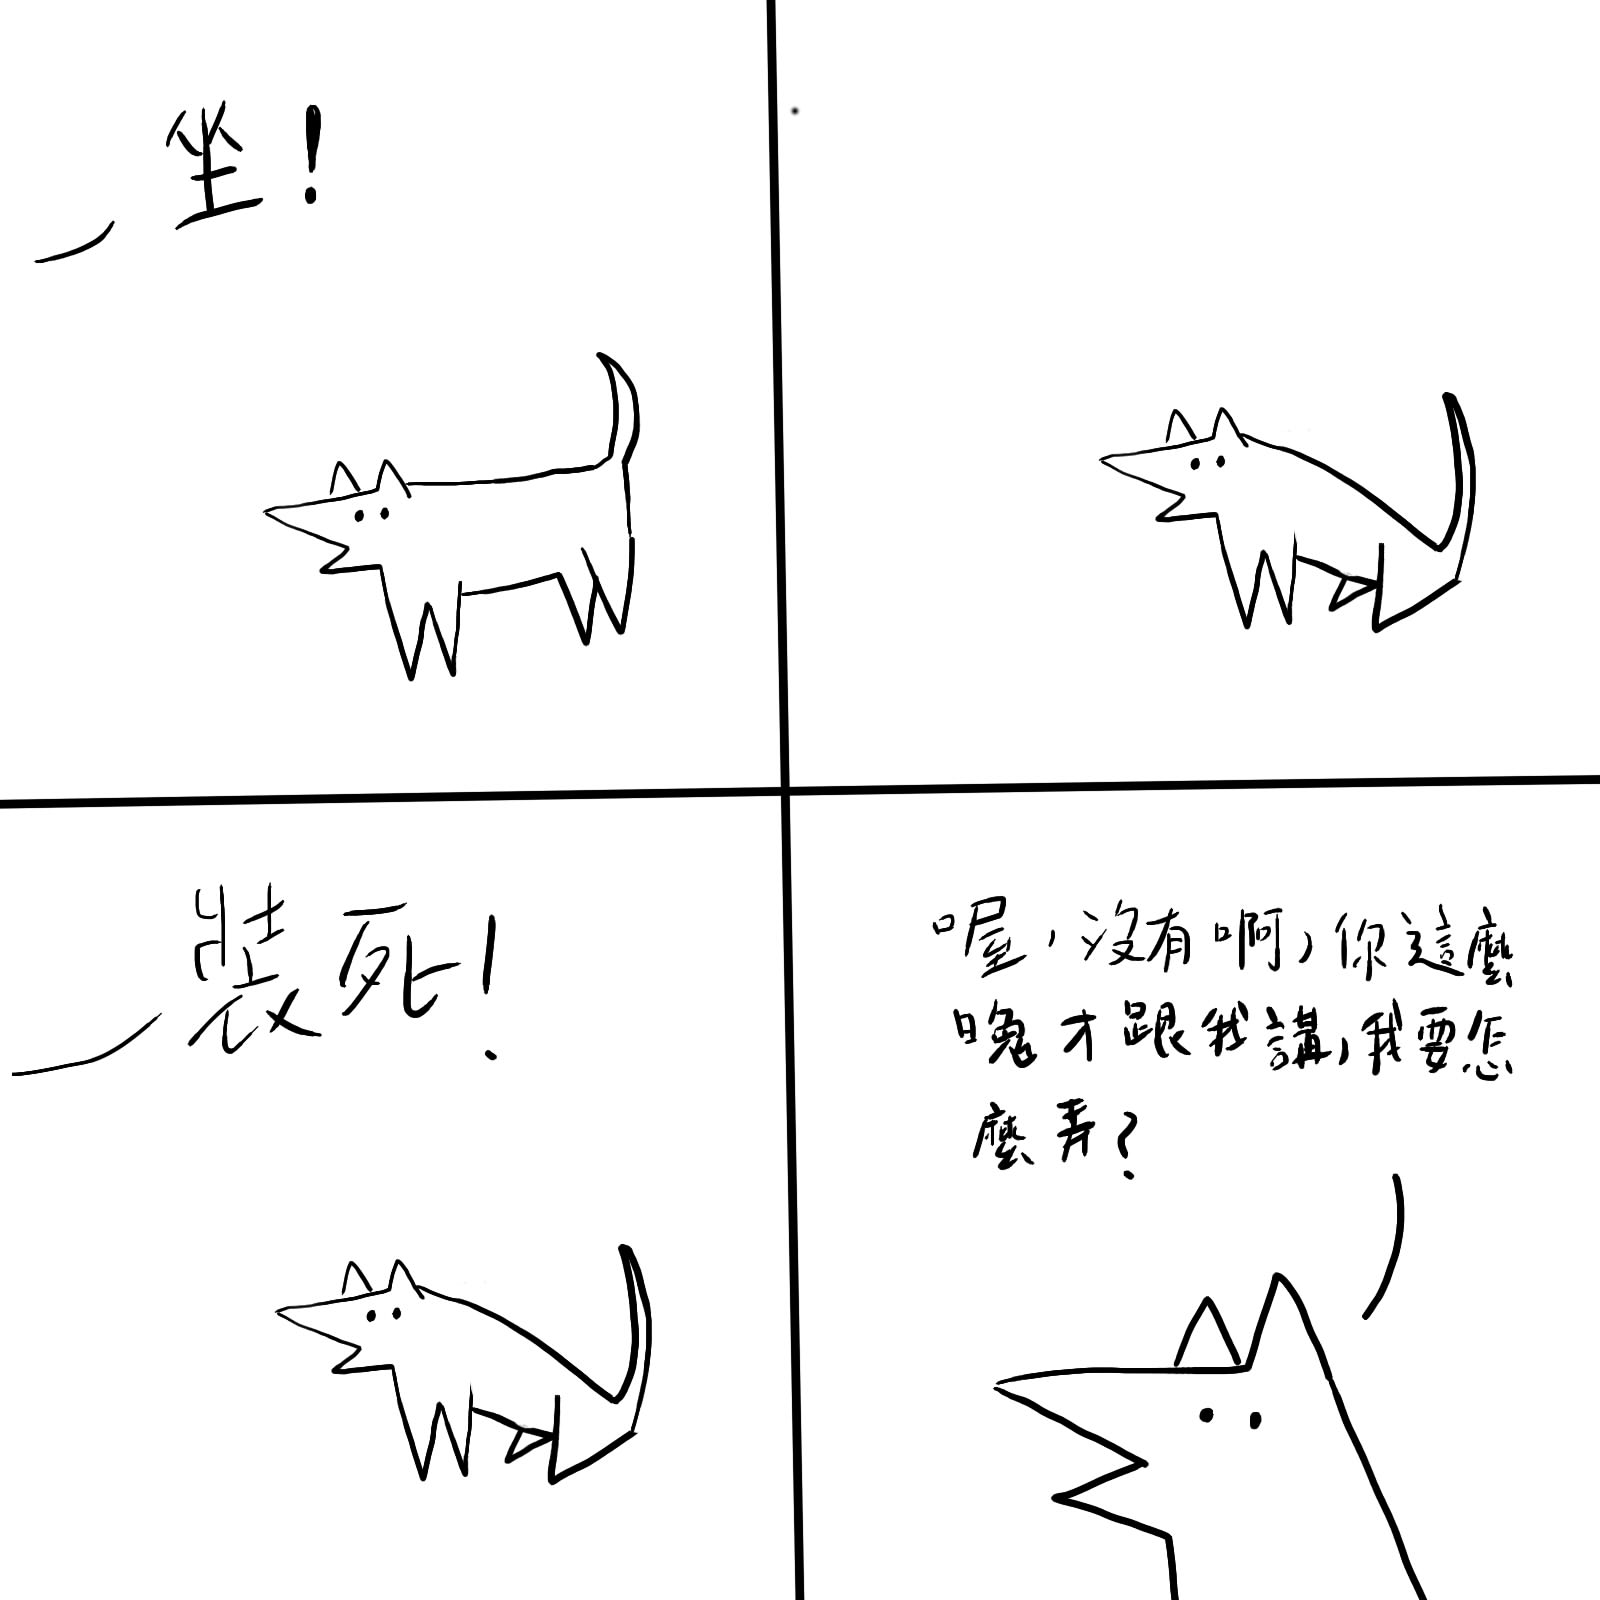 坐!
裝死!
喔,沒有啊,你這麼
晚才跟我講,我要怎
麼弄?